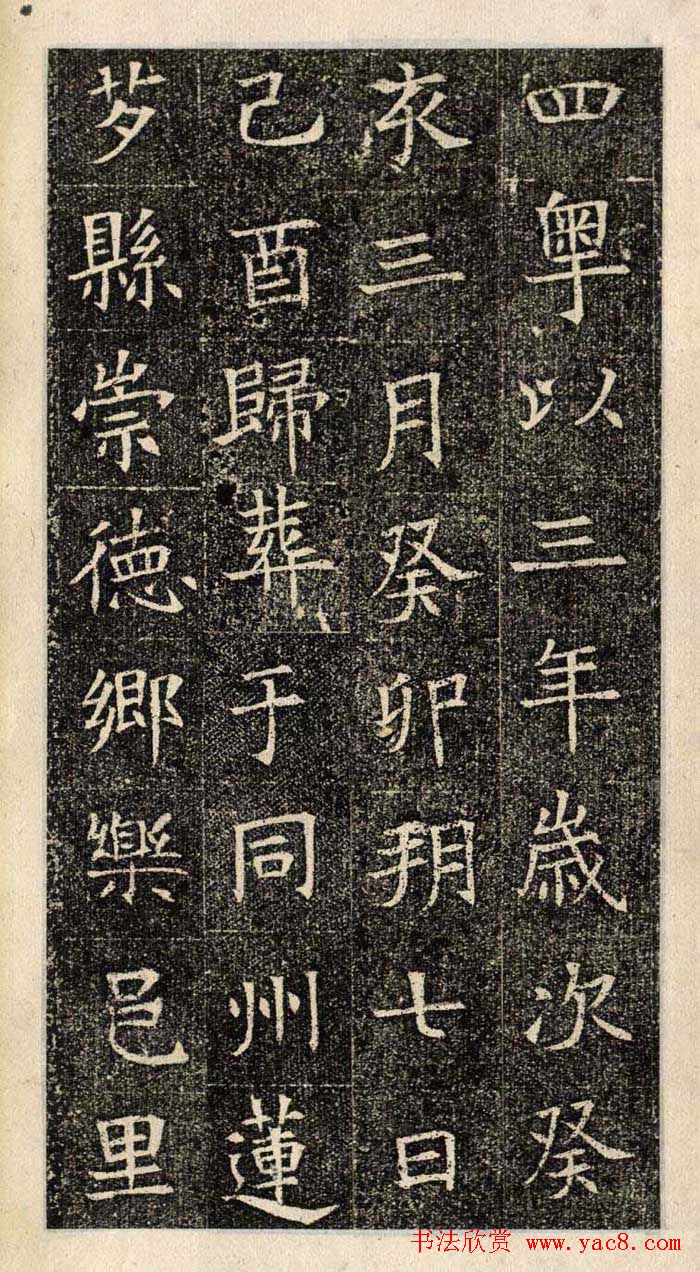 四粤以三年歲次癸
亥三月癸卯朔七日
己酉歸葬于同州蓮
芍縣崇德鄉樂邑里
书法欣赏 www.yac8.com